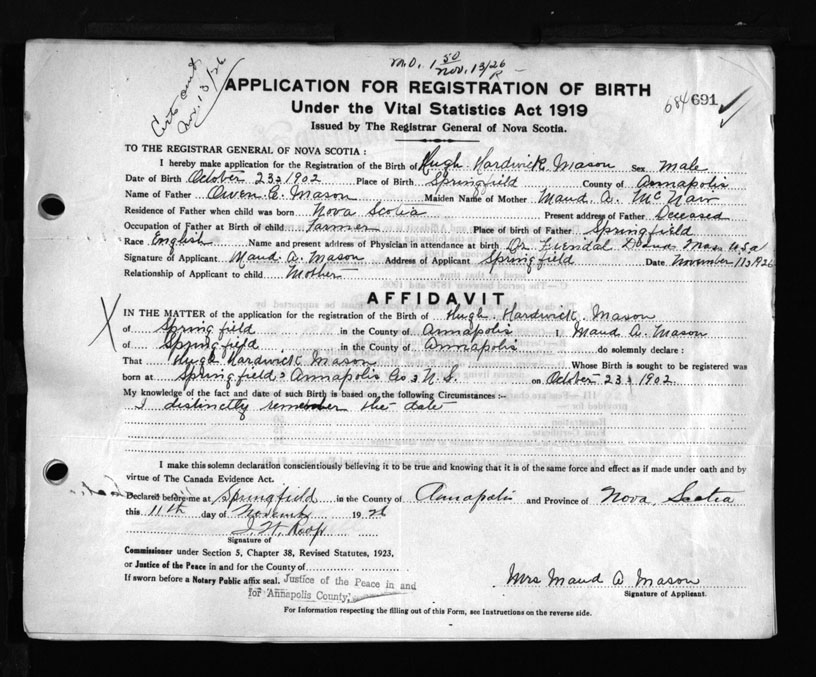 M.O. 1 50
Nov. 13/26
R
Nov 13/26
APPLICATION FOR REGISTRATION OF BIRTH
Under the Vital Statistics Act 1919
684 691
Issued by The Registrar General of Nova Scotia.
TO THE REGISTRAR GENERAL OF NOVA SCOTIA :
I hereby make application for the Registration of the Birth of Hugh Hardwick Mason Sex Male
Date of Birth October 23, 1902 Place of Birth Springfield County of Annapolis
Name of Father Owen C. Mason Maiden Name of Mother Maud A. McNair
Residence of Father when child was born Nova Scotia Present address of Father Deceased
Occupation of Father at Birth of child Farmer Place of birth of Father Springfield
Race English Name and present address of Physician in attendance at birth Dr. Mass U.S.a
Signature of Applicant Maud A. Mason Address of Applicant Springfield Date November 11, 1926
Relationship of Applicant to child Mother
AFFIDAVIT
IN THE MATTER of the application for the registration of the Birth of Hugh Hardwick Mason
of Springfield in the County of Annapolis I, Maud A. Mason
of Springfield in the County of Annapolis do solemnly declare :
That Hugh Hardwick Mason Whose Birth is sought to be registered was
born at Springfield, Annapolis Co, N.S. on October 23, 1902
My knowledge of the fact and date of such Birth is based on the following Circumstances :—
I distinctly remember the date
I make this solemn declaration conscientiously believing it to be true and knowing that it is of the same force and effect as if made under oath and by
virtue of The Canada Evidence Act.
Declared before me at Springfield in the County of Annapolis and Province of Nova Scotia
this 11th day of November 1926
Signature of
Commissioner under Section 5, Chapter 38, Revised Statutes, 1923,
or Justice of the Peace in and for the County of
If sworn before a Notary Public affix seal. Justice of the Peace in and
for Annapolis County,
Mrs Maud A Mason
Signature of Applicant.
For Information respecting the filling out of this Form, see Instructions on the reverse side.